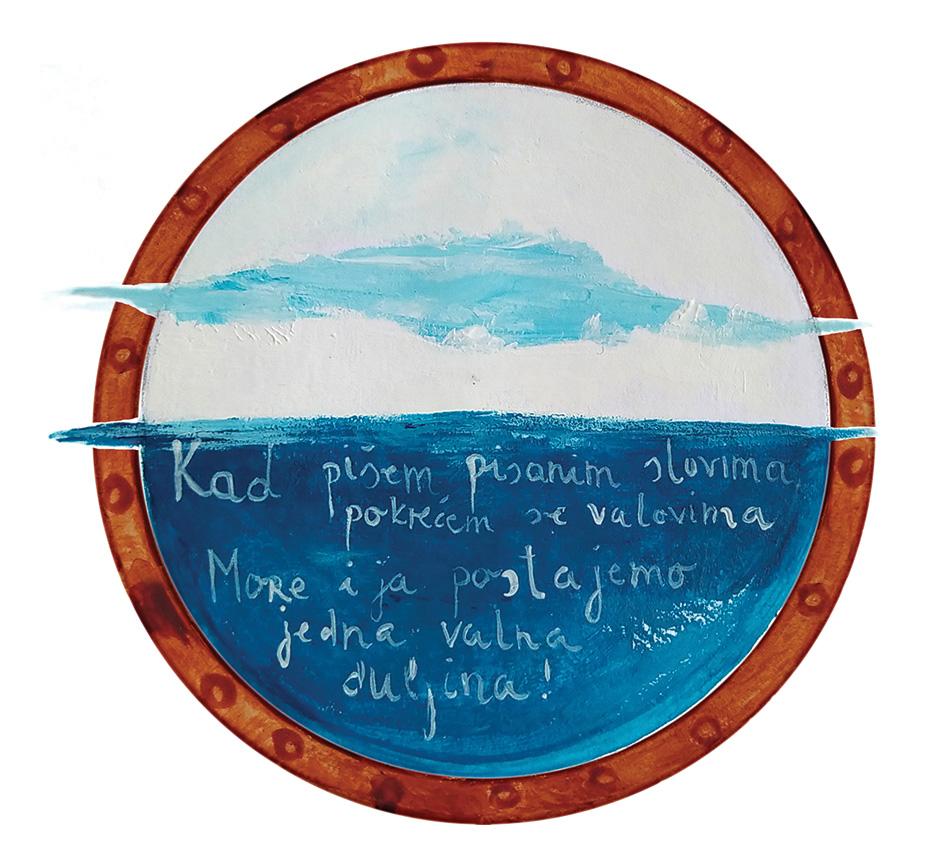 Kad pišem pisanim slovima,
pokrećem se valovima
More i ja postajemo
jedna valna
duljina!